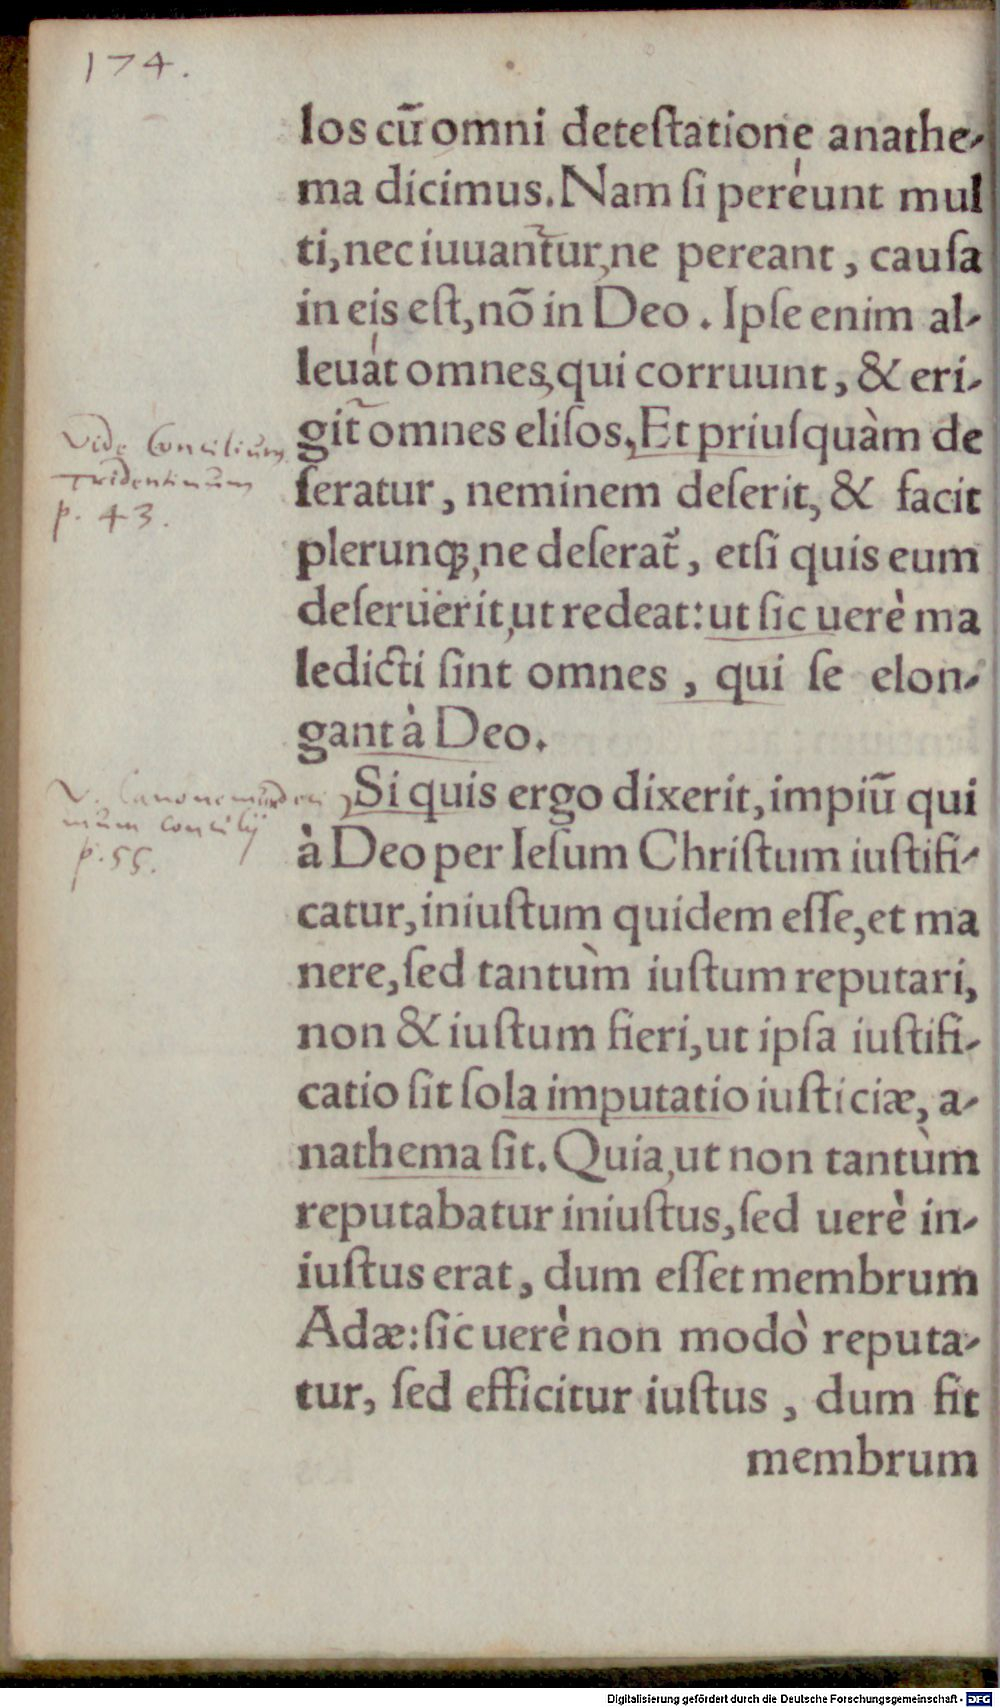 174.
los cū omni deteſtatione anathe-
ma dicimus. Nam ſi pereunt mul
ti, nec iuuantur, ne pereant, cauſa
in eis eſt, nō in Deo. Ipſe enim al-
leuat omnes, qui corruunt, & eri-
git omnes eliſos, Et priuſquàm de
ſeratur, neminem deſerit, & facit
plerunqꝫ, ne deſerat᷑, etſi quis eum
deſeruerit, ut redeat: ut ſic uerè ma
ledicti ſint omnes, qui ſe elon-
gant à Deo.
Vide Concilium
Tridentinum
p. 43.
Si quis ergo dixerit, impiū qui
à Deo per Ieſum Chriſtum iuſtifi-
catur, iniuſtum quidem eſſe, et ma
nere, ſed tantùm iuſtum reputari,
non & iuſtum fieri, ut ipſa iuſtifi-
catio ſit ſola imputatio iuſticiæ, a-
nathema ſit. Quia, ut non tantùm
reputabatur iniuſtus, ſed uerè in-
iuſtus erat, dum eſſet membrum
Adæ: ſic uerè non modò reputa-
tur, ſed efficitur iuſtus, dum fit
membrum
V. Canonem
mum concilij
p. 55.
Digitalisierung gefördert durch die Deutsche Forschungsgemeinschaft - DFG